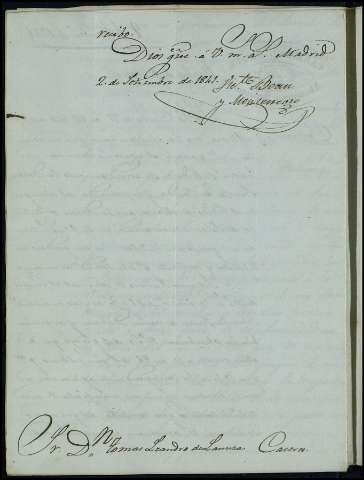 recibo.
Dios gue. á V. m. a. Madrid
2 de Setiembre de 1841.
y Montenegro
Sr. Dn. Tomas Leandro de Lanuza Cacera.